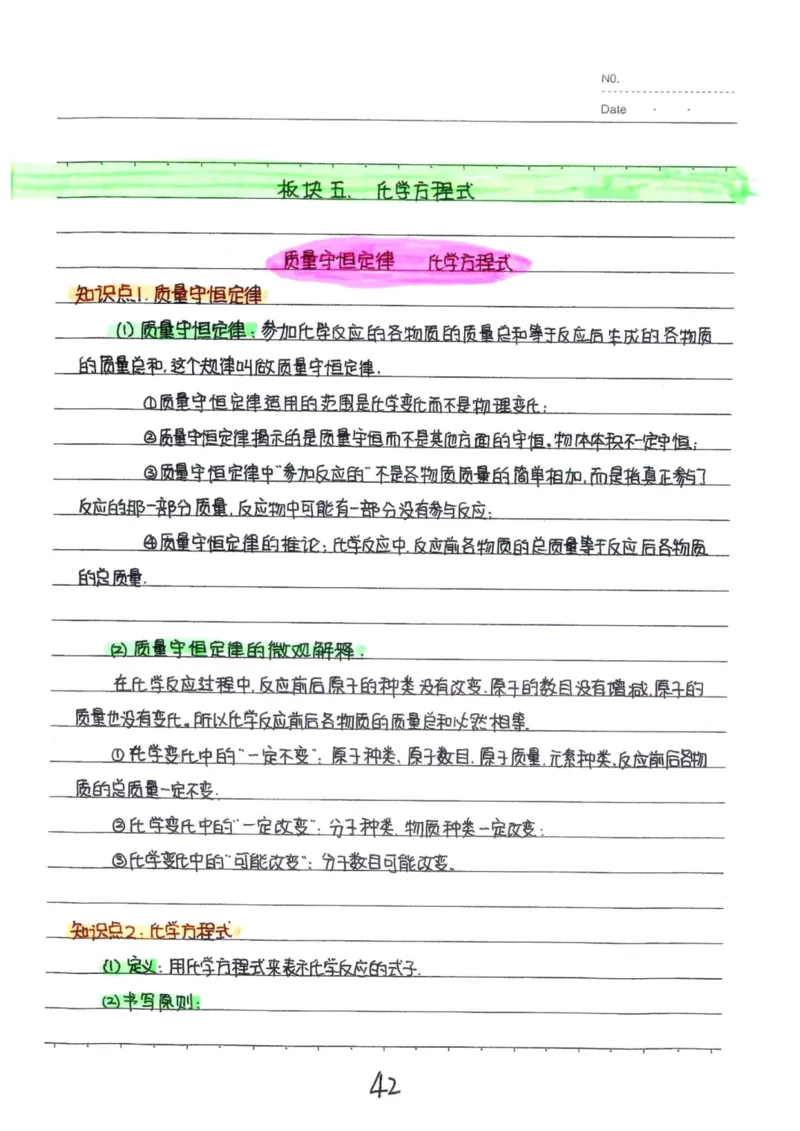 NO.
Date
板块五. 化学方程式
质量守恒定律 化学方程式
知识点1.质量守恒定律
(1)质量守恒定律:参加化学反应的各物质的质量总和等于反应后生成的各物质
的质量总和,这个规律叫做质量守恒定律.
①质量守恒定律适用的范围是化学变化而不是物理变化;
②质量守恒定律揭示的是质量守恒而不是其他方面的守恒。物体体积不一定守恒;
③质量守恒定律中"参加反应的"不是各物质质量的简单相加,而是指真正参与了
反应的那一部分质量,反应物中可能有一部分没有参与反应;
④质量守恒定律的推论:化学反应中,反应前各物质的总质量等于反应后各物质
的总质量.
(2)质量守恒定律的微观解释:
在化学反应过程中,反应前后原子的种类没有改变.原子的数目没有增减.原子的
质量也没有变化。所以化学反应前后各物质的质量总和必然相等.
①化学变化中的"一定不变":原子种类、原子数目.原子质量.元素种类、反应前后各物
质的总质量一定不变;
②化学变化中的"一定改变":分子种类.物质种类一定改变;
③化学变化中的"可能改变":分子数目可能改变。
知识点2.化学方程式
(1)定义:用化学方程式来表示化学反应的式子.
(2)书写原则:
42